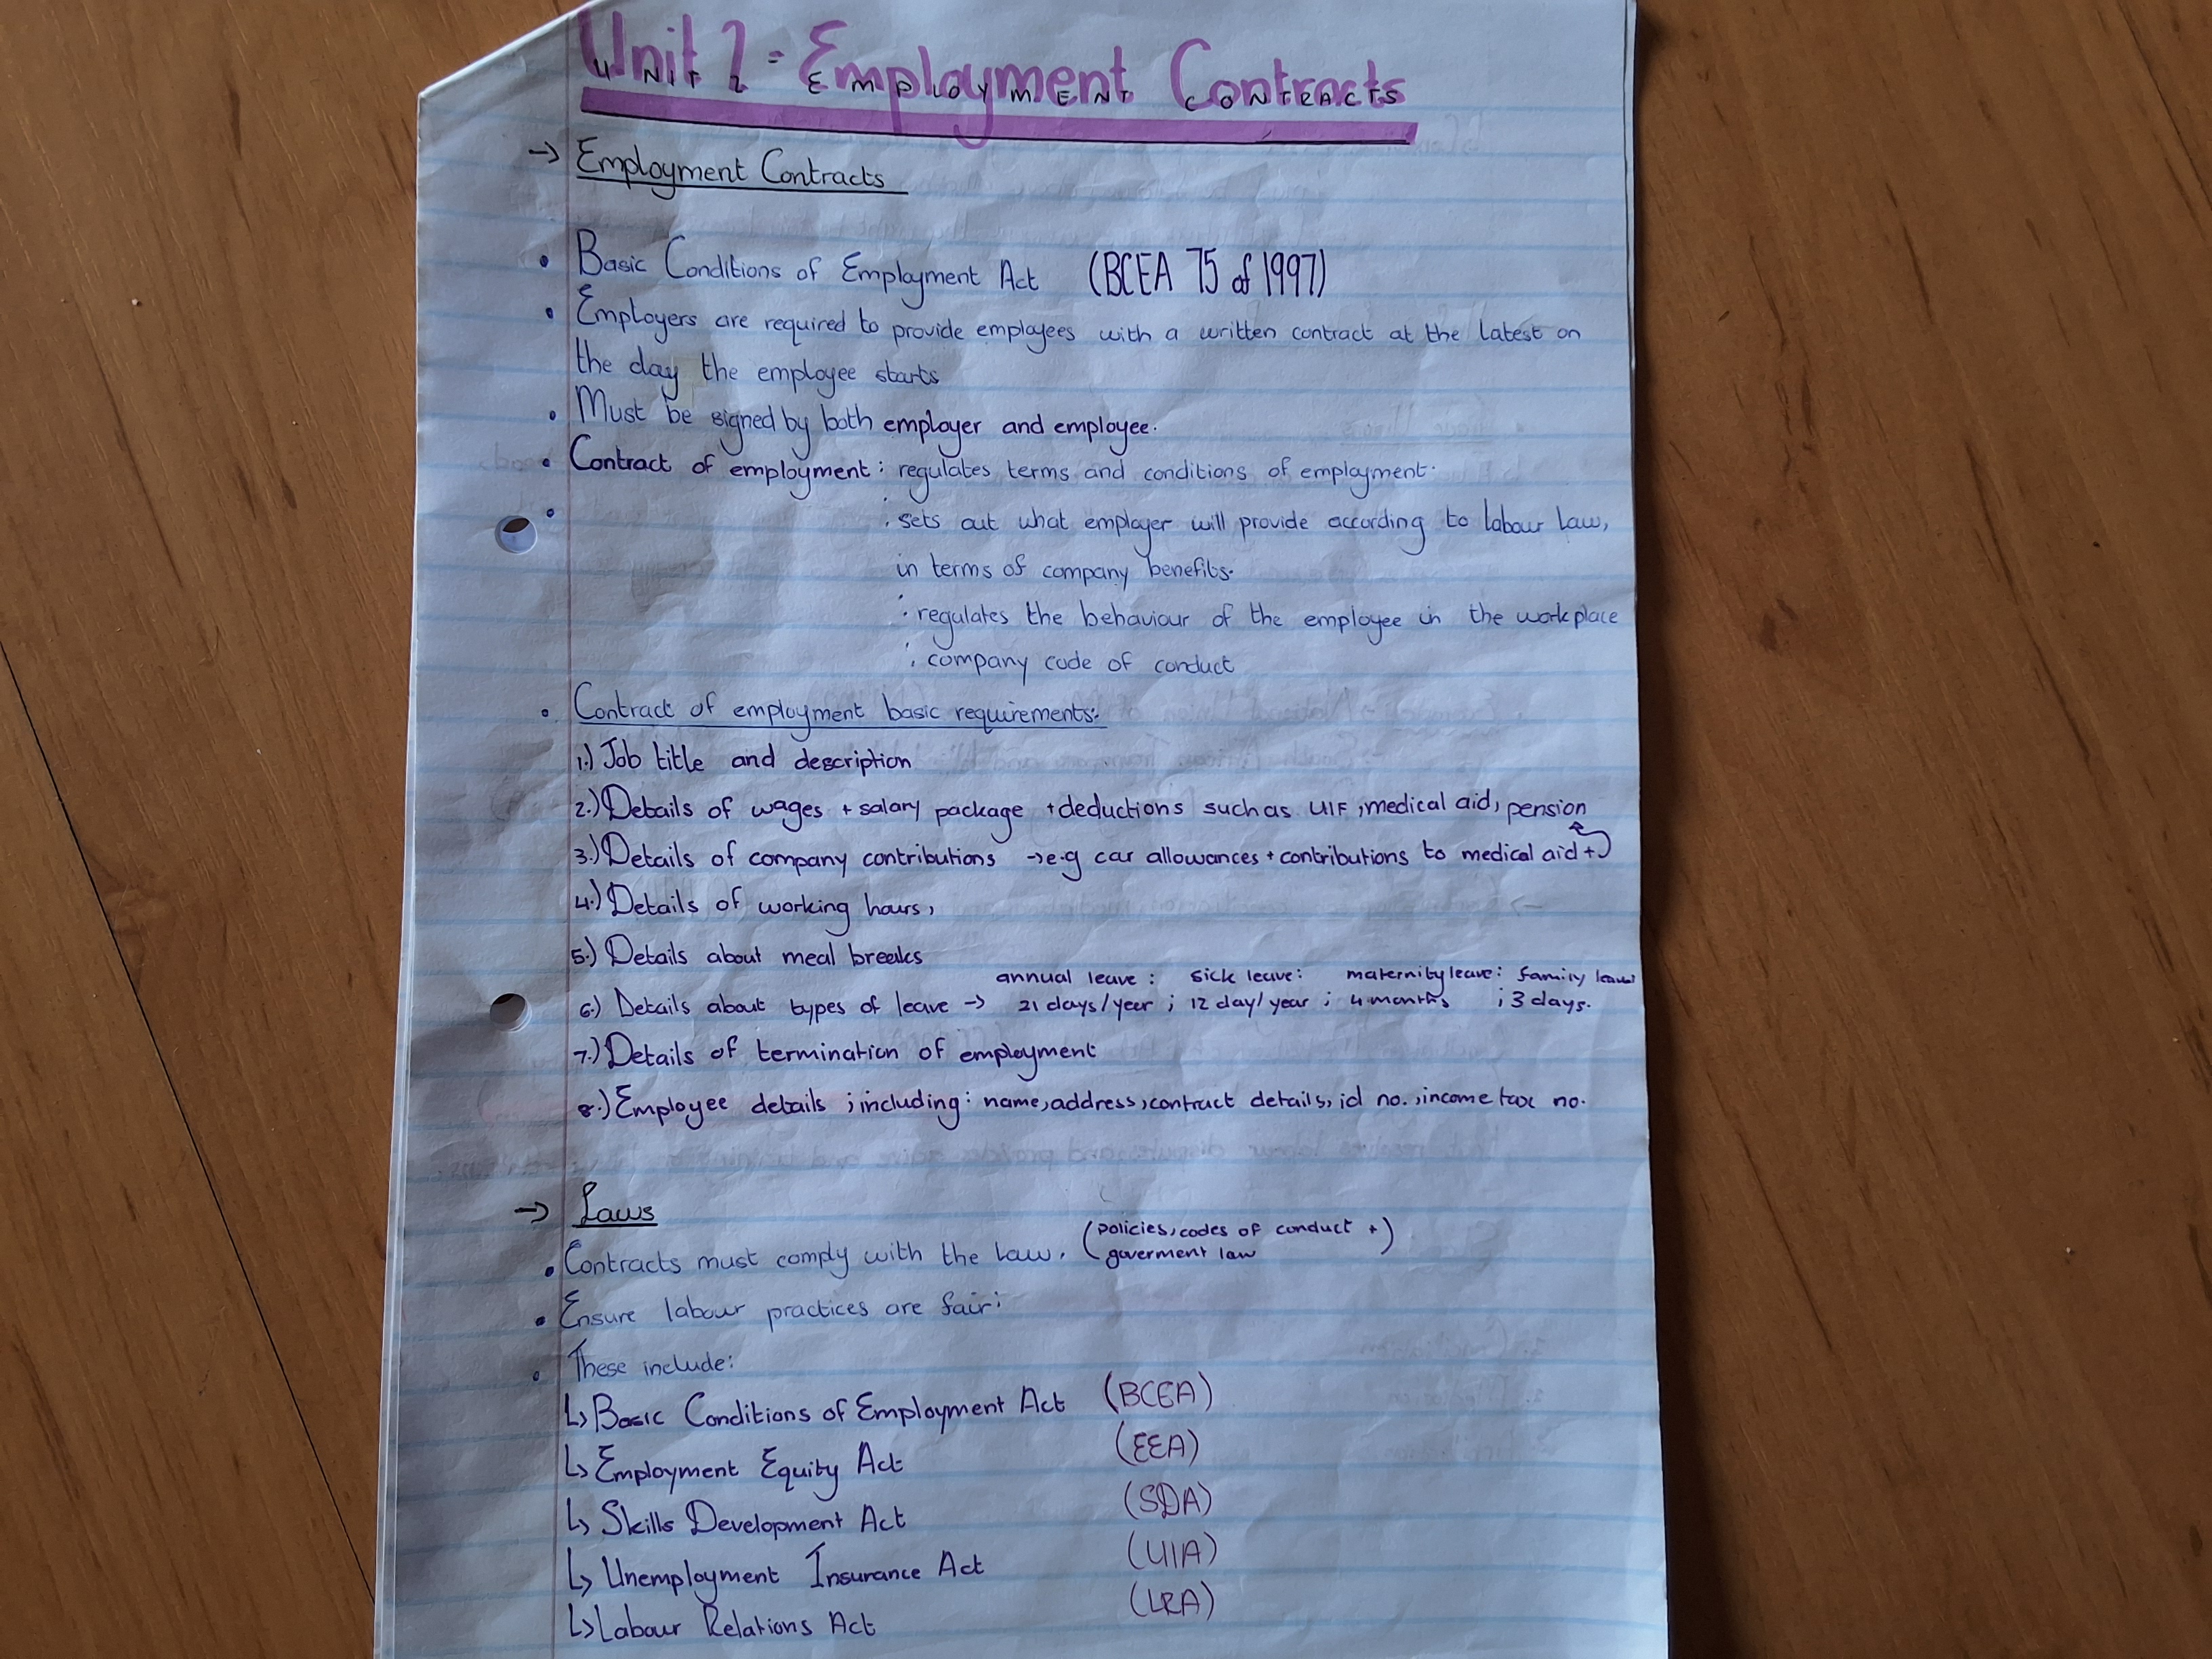 Unit 2 = Employment Contracts
UNIT 2 = EMPLOYMENT CONTRACTS
→ Employment Contracts
• Basic Conditions of Employment Act (BCEA 75 of 1997)
• Employers are required to provide employees with a written contract at the latest on
the day the employee starts
• Must be signed by both employer and employee.
• Contract of employment : regulates terms and conditions of employment.
• : sets out what employer will provide according to labour law,
in terms of company benefits.
: regulates the behaviour of the employee in the workplace
: company code of conduct
• Contract of employment basic requirements:
1.) Job title and description
2.) Details of wages + salary package + deductions such as UIF, medical aid, pension
3.) Details of company contributions → e.g car allowances + contributions to medical aid +
4.) Details of working hours,
5.) Details about meal breaks
annual leave : sick leave : maternity leave : family leave
6.) Details about types of leave → 21 days/year ; 12 day/year ; 4 months ; 3 days.
7.) Details of termination of employment
8.) Employee details ; including : name, address, contract details, id no., income tax no.
→ Laws
• Contracts must comply with the law. (policies, codes of conduct +
goverment law)
• Ensure labour practices are fair:
• These include:
↳ Basic Conditions of Employment Act (BCEA)
↳ Employment Equity Act (EEA)
↳ Skills Development Act (SDA)
↳ Unemployment Insurance Act (UIA)
↳ Labour Relations Act (LRA)